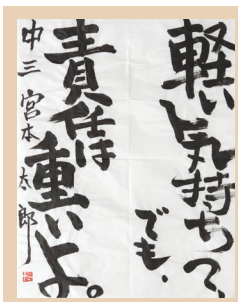 軽い気持ちで、
でも、
責任は
重いよ。
中三 宮本 太郎